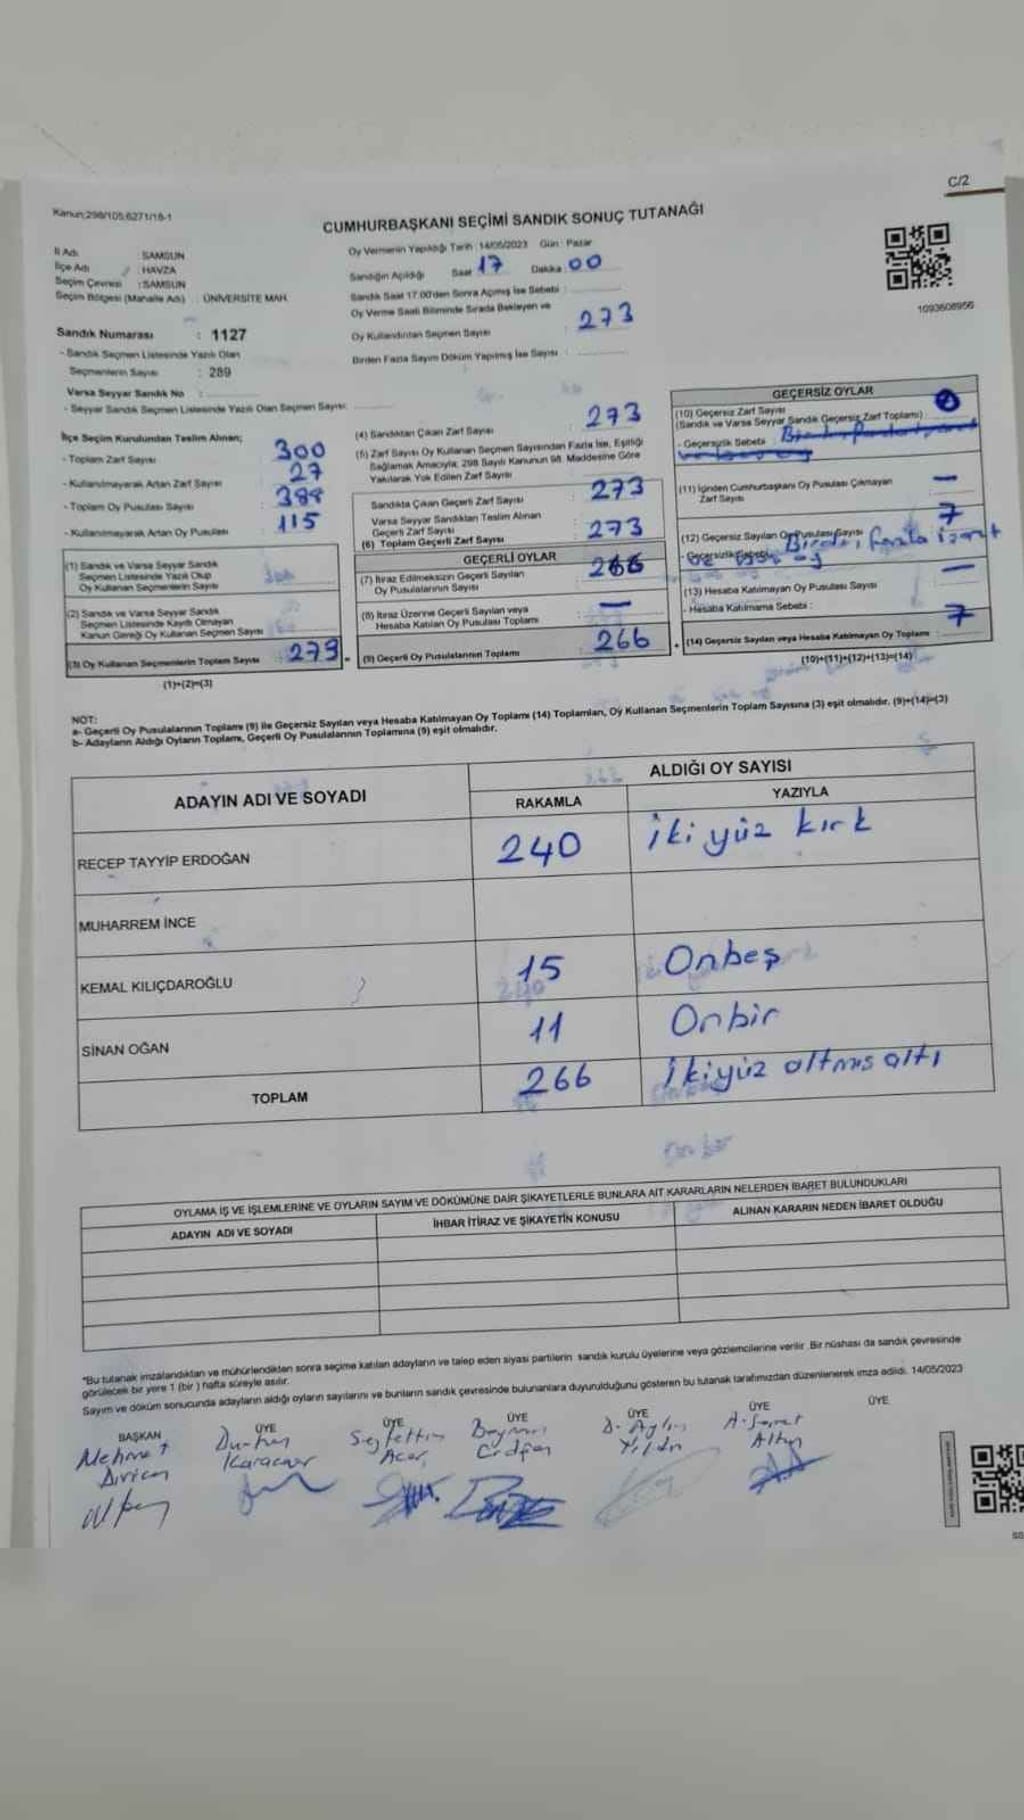 C/2
Kanun:298/105,6271/18-1
CUMHURBAŞKANI SEÇİMİ SANDIK SONUÇ TUTANAĞI
İl Adı : SAMSUN
İlçe Adı : HAVZA
Seçim Çevresi : SAMSUN
Seçim Bölgesi (Mahalle Adı) : ÜNİVERSİTE MAH.
Sandık Numarası : 1127
- Sandık Seçmen Listesinde Yazılı Olan
Seçmenlerin Sayısı : 289
Varsa Seyyar Sandık No :
- Seyyar Sandık Seçmen Listesinde Yazılı Olan Seçmen Sayısı:
Oy Vermenin Yapıldığı Tarih : 14/05/2023 Gün : Pazar
Sandığın Açıldığı Saat : 17 Dakika : 00
Sandık Saat 17.00'den Sonra Açılmış İse Sebebi :
Oy Verme Saati Bitiminde Sırada Bekleyen ve
Oy Kullandırılan Seçmen Sayısı : 273
Birden Fazla Sayım Döküm Yapılmış İse Sayısı :
1093608956
İlçe Seçim Kurulundan Teslim Alınan;
- Toplam Zarf Sayısı : 300
- Kullanılmayarak Artan Zarf Sayısı : 27
- Toplam Oy Pusulası Sayısı : 388
- Kullanılmayarak Artan Oy Pusulası : 115
(1) Sandık ve Varsa Seyyar Sandık
Seçmen Listesinde Yazılı Olup
Oy Kullanan Seçmenlerin Sayısı
(2) Sandık ve Varsa Seyyar Sandık
Seçmen Listesinde Kayıtlı Olmayan
Kanun Gereği Oy Kullanan Seçmen Sayısı
(3) Oy Kullanan Seçmenlerin Toplam Sayısı : 273
(1)+(2)=(3)
(4) Sandıktan Çıkan Zarf Sayısı : 273
(5) Zarf Sayısı Oy Kullanan Seçmen Sayısından Fazla İse, Eşitliği
Sağlamak Amacıyla, 298 Sayılı Kanunun 98. Maddesine Göre
Yakılarak Yok Edilen Zarf Sayısı
Sandıkta Çıkan Geçerli Zarf Sayısı : 273
Varsa Seyyar Sandıktan Teslim Alınan
Geçerli Zarf Sayısı
(6) Toplam Geçerli Zarf Sayısı : 273
GEÇERLİ OYLAR
(7) İtiraz Edilmeksizin Geçerli Sayılan
Oy Pusulalarının Sayısı : 266
(8) İtiraz Üzerine Geçerli Sayılan veya
Hesaba Katılan Oy Pusulası Toplamı : —
(9) Geçerli Oy Pusulalarının Toplamı : 266
GEÇERSİZ OYLAR
(10) Geçersiz Zarf Sayısı
(Sandık ve Varsa Seyyar Sandık Geçersiz Zarf Toplamı) : 0
- Geçersizlik Sebebi :
(11) İçinden Cumhurbaşkanı Oy Pusulası Çıkmayan
Zarf Sayısı : —
(12) Geçersiz Sayılan Oy Pusulası Sayısı : 7
- Geçersizlik Sebebi : Birden fazla
(13) Hesaba Katılmayan Oy Pusulası Sayısı : —
- Hesaba Katılmama Sebebi :
(14) Geçersiz Sayılan veya Hesaba Katılmayan Oy Toplamı : 7
(10)+(11)+(12)+(13)=(14)
NOT:
a- Geçerli Oy Pusulalarının Toplamı (9) ile Geçersiz Sayılan veya Hesaba Katılmayan Oy Toplamı (14) Toplamları, Oy Kullanan Seçmenlerin Toplam Sayısına (3) eşit olmalıdır. (9)+(14)=(3)
b- Adayların Aldığı Oyların Toplamı, Geçerli Oy Pusulalarının Toplamına (9) eşit olmalıdır.
ADAYIN ADI VE SOYADI
ALDIĞI OY SAYISI
RAKAMLA YAZIYLA
RECEP TAYYİP ERDOĞAN 240 İkiyüz kırk
MUHARREM İNCE
KEMAL KILIÇDAROĞLU 15 Onbeş
SİNAN OĞAN 11 Onbir
TOPLAM 266 İkiyüz altmış altı
OYLAMA İŞ VE İŞLEMLERİNE VE OYLARIN SAYIM VE DÖKÜMÜNE DAİR ŞİKAYETLERLE BUNLARA AİT KARARLARIN NELERDEN İBARET BULUNDUKLARI
ADAYIN ADI VE SOYADI İHBAR İTİRAZ VE ŞİKAYETİN KONUSU ALINAN KARARIN NEDEN İBARET OLDUĞU
*Bu tutanak imzalandıktan ve mühürlendikten sonra seçime katılan adayların ve talep eden siyasi partilerin sandık kurulu üyelerine veya gözlemcilerine verilir. Bir nüshası da sandık çevresinde
görülecek bir yere 1 (bir) hafta süreyle asılır.
Sayım ve döküm sonucunda adayların aldığı oyların sayılarını ve bunların sandık çevresinde bulunanlara duyurulduğunu gösteren bu tutanak tarafımızdan düzenlenerek imza edildi. 14/05/2023
BAŞKAN ÜYE ÜYE ÜYE ÜYE ÜYE ÜYE
Mehmet Karacar Seyfettin Acar